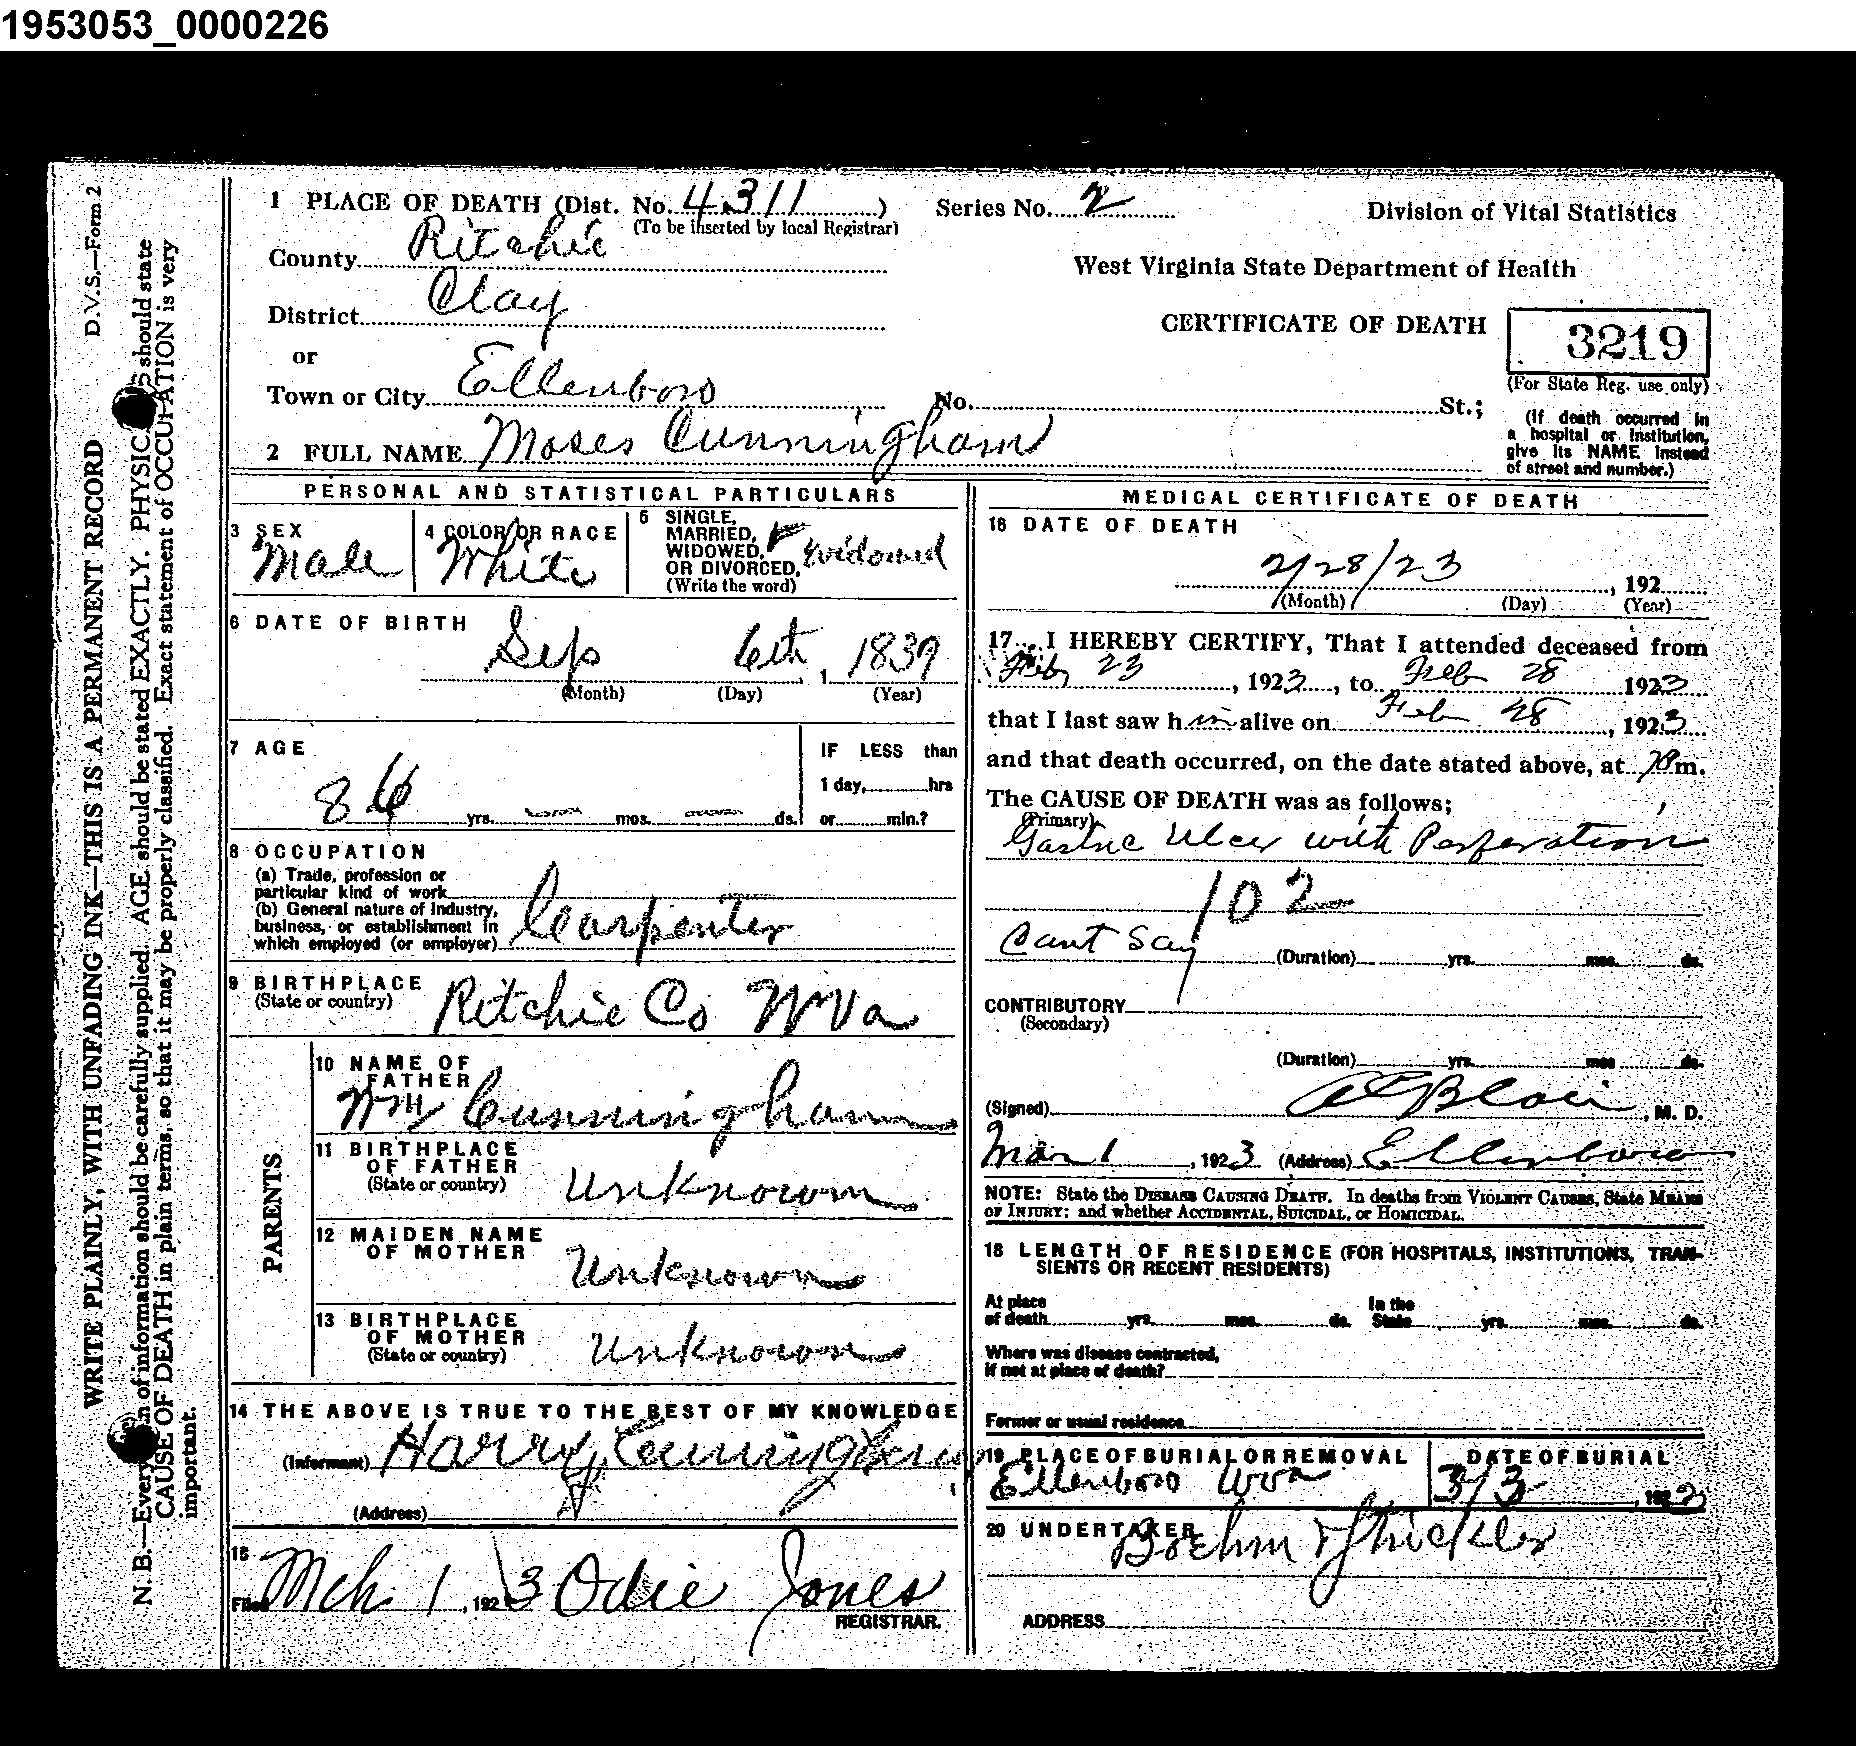 1953053_0000226
D.V.S.—Form 2
WRITE PLAINLY, WITH UNFADING INK—THIS IS A PERMANENT RECORD
N. B.—Every of information should be carefully supplied. AGE should be stated EXACTLY. PHYSIC should state
CAUSE OF DEATH in plain terms, so that it may be properly classified. Exact statement of OCCUPATION is very
important.
1 PLACE OF DEATH (Dist. No. 4311) Series No. 2
Division of Vital Statistics
(To be inserted by local Registrar)
County Ritchie
West Virginia State Department of Health
District Clay
CERTIFICATE OF DEATH
3219
(For State Reg. use only)
or
Town or City Ellenboro No. St.;
(If death occurred in
a hospital or institution,
give its NAME instead
of street and number.)
2 FULL NAME Moses Cunningham
PERSONAL AND STATISTICAL PARTICULARS
3 SEX
Male
4 COLOR OR RACE
White
5 SINGLE,
MARRIED,
WIDOWED,
OR DIVORCED,
(Write the word)
Widowed
6 DATE OF BIRTH
Sep 6th, 1839
(Month) (Day) (Year)
7 AGE
86 yrs. mos. ds.
IF LESS than
1 day, hrs
or min.?
8 OCCUPATION
(a) Trade, profession or
particular kind of work
(b) General nature of industry,
business, or establishment in
which employed (or employer)
Carpenter
9 BIRTHPLACE
(State or country)
Ritchie Co W Va
PARENTS
10 NAME OF
FATHER
Wm Cunningham
11 BIRTHPLACE
OF FATHER
(State or country)
Unknown
12 MAIDEN NAME
OF MOTHER
Unknown
13 BIRTHPLACE
OF MOTHER
(State or country)
Unknown
14 THE ABOVE IS TRUE TO THE BEST OF MY KNOWLEDGE
(Informant) Harry Cunningham
(Address)
15
Filed Mch 1, 1923 Odie Jones
REGISTRAR.
MEDICAL CERTIFICATE OF DEATH
16 DATE OF DEATH
2/28/23, 192
(Month) (Day) (Year)
17 I HEREBY CERTIFY, That I attended deceased from
Feb 23, 1923, to Feb 28 1923
that I last saw h im alive on Feb 28, 1923
and that death occurred, on the date stated above, at m.
The CAUSE OF DEATH was as follows:
(Primary)
Gastric Ulcer with Perforation
102
Cant Say (Duration) yrs. mos. ds.
CONTRIBUTORY
(Secondary)
(Duration) yrs. mos ds.
(Signed) Blair, M. D.
Mar 1, 1923 (Address) Ellenboro
NOTE: State the DISEASE CAUSING DEATH. In deaths from VIOLENT CAUSES, State MEANS
OF INJURY; and whether ACCIDENTAL, SUICIDAL, or HOMICIDAL.
18 LENGTH OF RESIDENCE (FOR HOSPITALS, INSTITUTIONS, TRAN-
SIENTS OR RECENT RESIDENTS)
At place
of death yrs. mos. ds.
In the
State yrs. mos. ds.
Where was disease contracted,
if not at place of death?
Former or usual residence
19 PLACE OF BURIAL OR REMOVAL
Ellenboro W Va
DATE OF BURIAL
3/3, 1923
20 UNDERTAKER
Boehm & Strickler
ADDRESS